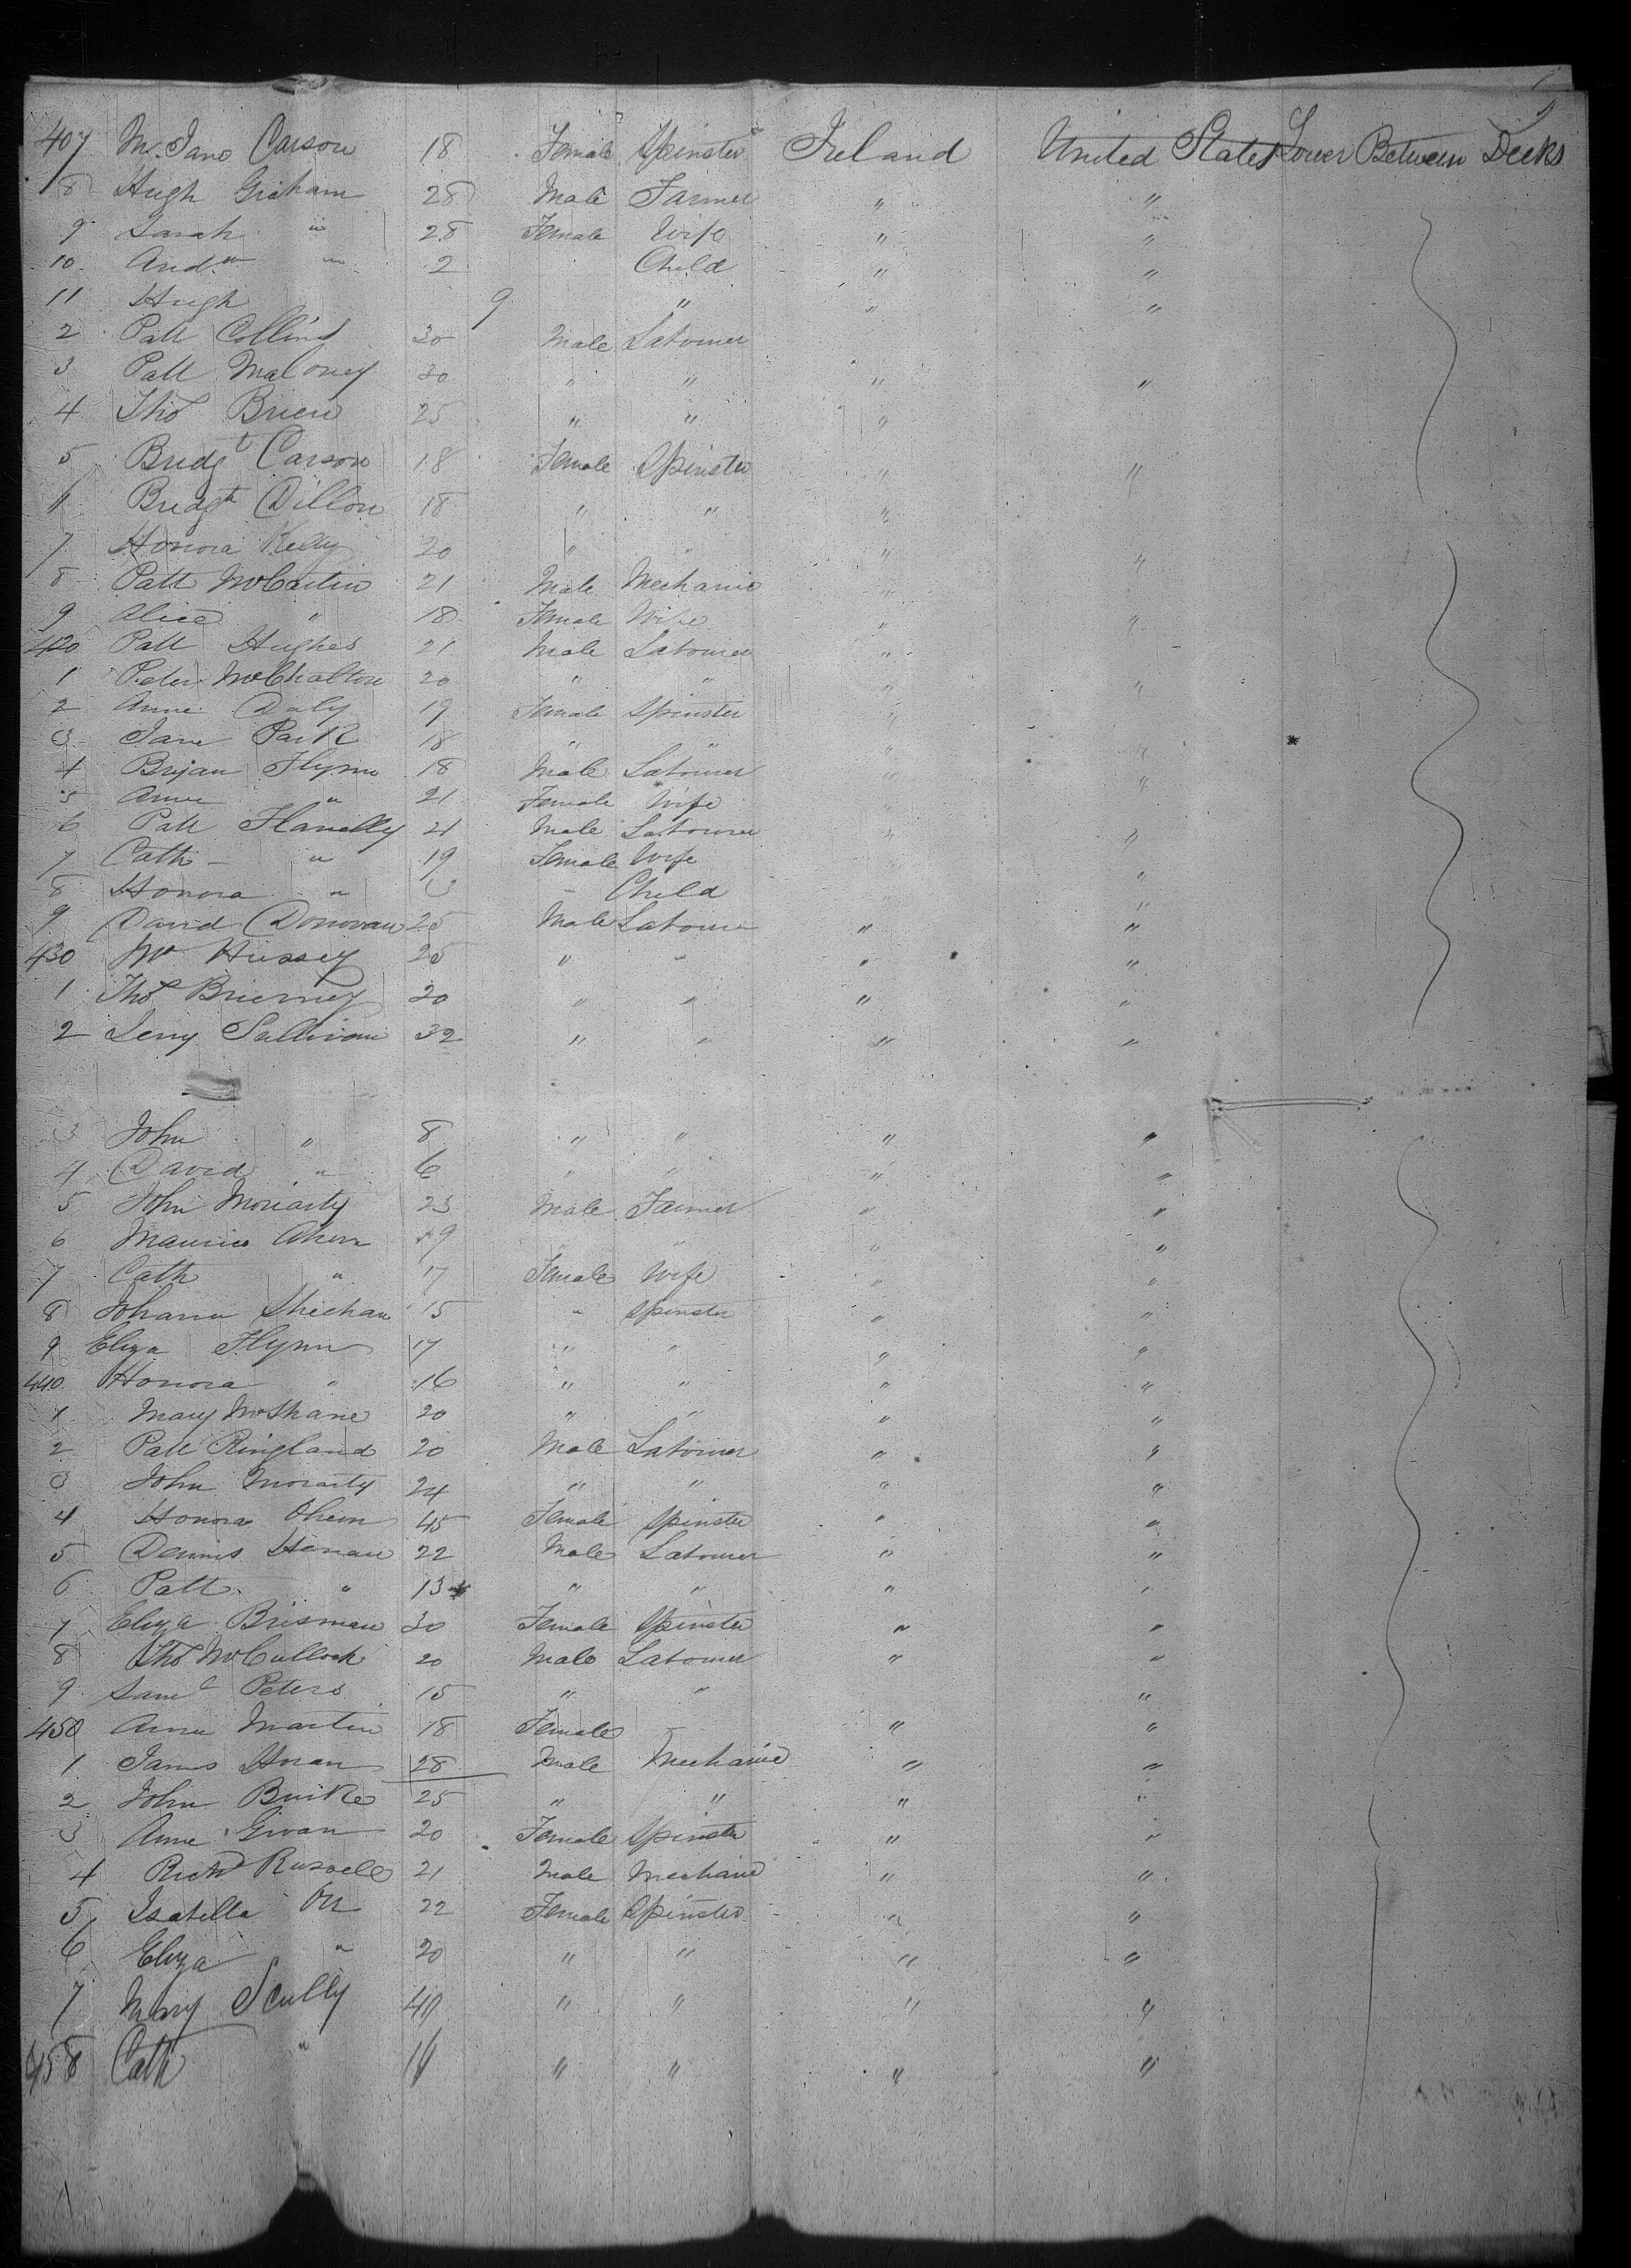 407 M. Jane Carson 18 Female Spinster Ireland United States Lower Between Decks
8 Hugh Graham 28 Male Farmer " "
9 Sarah " 28 Female Wife " "
10 And.w " 2 Child " "
11 Hugh 9 " " "
2 Patt Collins 30 Male Labourer
3 Patt Maloney 20 " " " "
4 Thos Brien 25 " " "
5 Bridgt Carson 18 Female Spinster " "
6 Bridgt Dillon 18 " " "
7 Honora Kelly 20 " " " "
8 Patt McCartin 21 Male Mechanic "
9 Alice " 18 Female Wife " "
420 Patt Hughes 21 Male Labourer "
1 Peter 20 " " " "
2 Anne Daly 19 Female Spinster "
3 Jane Park 18 " " " "
4 Bryan Flynn 18 Male Labourer " "
5 Anne " 21 Female Wife "
6 Patt Flanelly 21 Male Labourer " "
7 Cath " 19 Female Wife "
8 Honora " 3 " Child "
9 David Donovan 25 Male Labourer " "
430 Hussey 25 " " " "
1 Thos Brierney 20 " " " "
2 Jerry Sullivan 32 " " " "
3 John " 8 " " " "
4 David " 6 " " " "
5 John Moriarty 23 Male Farmer " "
6 Maurice Ahern 19 " " " "
7 Cath " 17 Female Wife " "
8 Johana Sheehan 15 " Spinster " "
9 Eliza Flynn 17 " " " "
440 Honora " 16 " " " "
1 Mary McShane 20 " " " "
2 Patt Ringland 20 Male Labourer " "
3 John Moriarty 24 " " " "
4 Honora Ahern 45 Female Spinster " "
5 Dennis Henan 22 Male Labourer " "
6 Patt " 13 " " " "
7 Eliza Brisman 30 Female Spinster " "
8 Thos McCulloch 20 Male Labourer " "
9 Saml Peters 15 " " "
450 Anne Martin 18 Female " "
1 James Horan 28 Male Mechanic " "
2 John Burke 25 " " " "
3 Anne Givan 20 Female Spinster " "
4 Richd Russell 21 Male Mechanic " "
5 Isabella Orr 22 Female Spinster " "
6 Eliza " 20 " " " "
7 Mary Scully 40 " " " "
458 Cath " " " " "